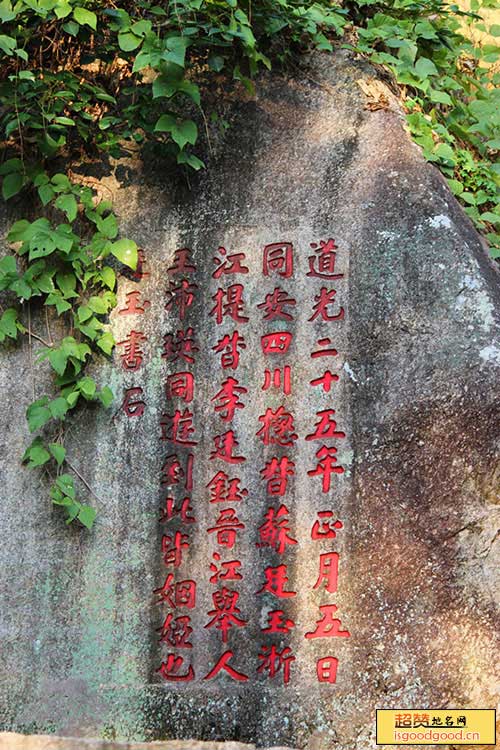 道光二十五年正月五日
同安四川摠督蘇廷玉浙
江提督李廷鈺晋江舉人
王沛瑛同遊到此皆姻婭也
廷玉書石
超赞地名网
isgoodgood.cn